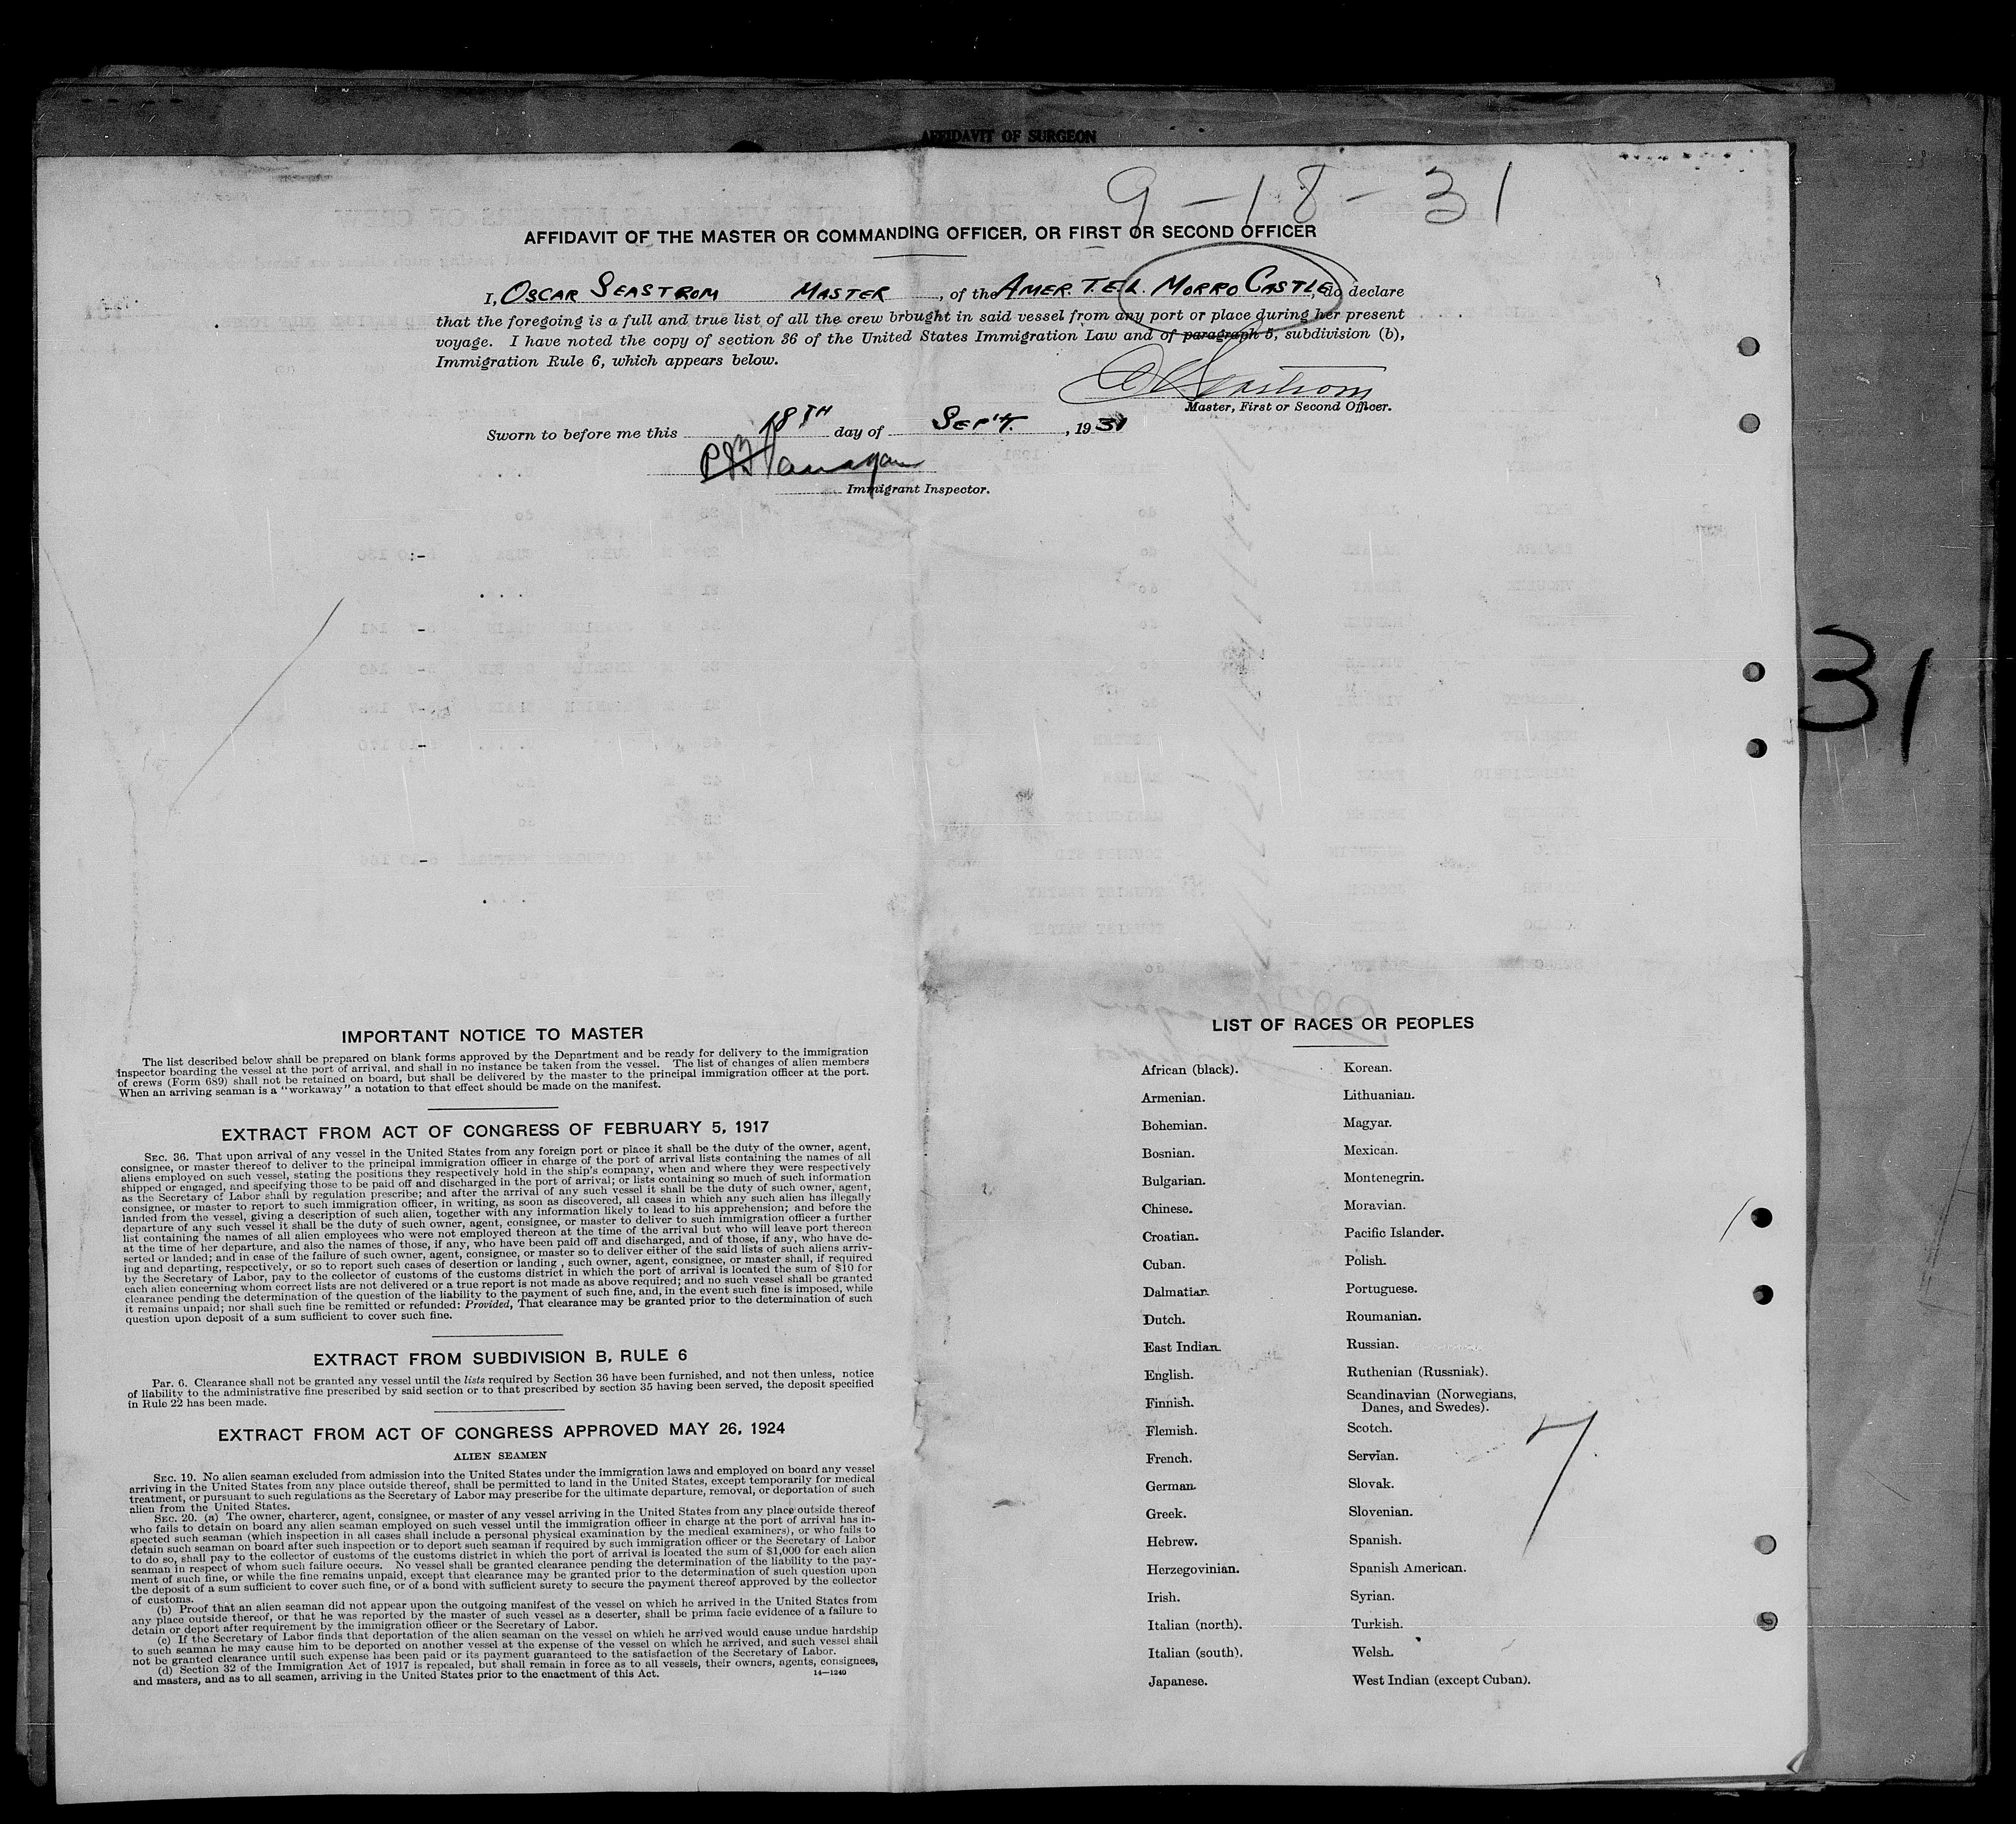 AFFIDAVIT OF SURGEON
9-18-31
AFFIDAVIT OF THE MASTER OR COMMANDING OFFICER, OR FIRST OR SECOND OFFICER
I, OSCAR SEASTROM MASTER, of the AMER. T.E.L. MORRO CASTLE, do declare
that the foregoing is a full and true list of all the crew brought in said vessel from any port or place during her present
voyage. I have noted the copy of section 36 of the United States Immigration Law and of paragraph 5, subdivision (b),
Immigration Rule 6, which appears below.
Master, First or Second Officer.
Sworn to before me this 18TH day of SEP'T., 1931
Immigrant Inspector.
31
IMPORTANT NOTICE TO MASTER
The list described below shall be prepared on blank forms approved by the Department and be ready for delivery to the immigration
inspector boarding the vessel at the port of arrival, and shall in no instance be taken from the vessel. The list of changes of alien members
of crews (Form 689) shall not be retained on board, but shall be delivered by the master to the principal immigration officer at the port.
When an arriving seaman is a "workaway" a notation to that effect should be made on the manifest.
EXTRACT FROM ACT OF CONGRESS OF FEBRUARY 5, 1917
SEC. 36. That upon arrival of any vessel in the United States from any foreign port or place it shall be the duty of the owner, agent,
consignee, or master thereof to deliver to the principal immigration officer in charge of the port of arrival lists containing the names of all
aliens employed on such vessel, stating the positions they respectively hold in the ship's company, when and where they were respectively
shipped or engaged, and specifying those to be paid off and discharged in the port of arrival; or lists containing so much of such information
as the Secretary of Labor shall by regulation prescribe; and after the arrival of any such vessel it shall be the duty of such owner, agent,
consignee, or master to report to such immigration officer, in writing, as soon as discovered, all cases in which any such alien has illegally
landed from the vessel, giving a description of such alien, together with any information likely to lead to his apprehension; and before the
departure of any such vessel it shall be the duty of such owner, agent, consignee, or master to deliver to such immigration officer a further
list containing the names of all alien employees who were not employed thereon at the time of the arrival but who will leave port thereon
at the time of her departure, and also the names of those, if any, who have been paid off and discharged, and of those, if any, who have de-
serted or landed; and in case of the failure of such owner, agent, consignee, or master so to deliver either of the said lists of such aliens arriv-
ing and departing, respectively, or so to report such cases of desertion or landing , such owner, agent, consignee, or master shall, if required
by the Secretary of Labor, pay to the collector of customs of the customs district in which the port of arrival is located the sum of $10 for
each alien concerning whom correct lists are not delivered or a true report is not made as above required; and no such vessel shall be granted
clearance pending the determination of the question of the liability to the payment of such fine, and, in the event such fine is imposed, while
it remains unpaid; nor shall such fine be remitted or refunded: Provided, That clearance may be granted prior to the determination of such
question upon deposit of a sum sufficient to cover such fine.
EXTRACT FROM SUBDIVISION B, RULE 6
Par. 6. Clearance shall not be granted any vessel until the lists required by Section 36 have been furnished, and not then unless, notice
of liability to the administrative fine prescribed by said section or to that prescribed by section 35 having been served, the deposit specified
in Rule 22 has been made.
EXTRACT FROM ACT OF CONGRESS APPROVED MAY 26, 1924
ALIEN SEAMEN
SEC. 19. No alien seaman excluded from admission into the United States under the immigration laws and employed on board any vessel
arriving in the United States from any place outside thereof, shall be permitted to land in the United States, except temporarily for medical
treatment, or pursuant to such regulations as the Secretary of Labor may prescribe for the ultimate departure, removal, or deportation of such
alien from the United States.
SEC. 20. (a) The owner, charterer, agent, consignee, or master of any vessel arriving in the United States from any place outside thereof
who fails to detain on board any alien seaman employed on such vessel until the immigration officer in charge at the port of arrival has in-
spected such seaman (which inspection in all cases shall include a personal physical examination by the medical examiners), or who fails to
detain such seaman on board after such inspection or to deport such seaman if required by such immigration officer or the Secretary of Labor
to do so, shall pay to the collector of customs of the customs district in which the port of arrival is located the sum of $1,000 for each alien
seaman in respect of whom such failure occurs. No vessel shall be granted clearance pending the determination of the liability to the pay-
ment of such fine, or while the fine remains unpaid, except that clearance may be granted prior to the determination of such question upon
the deposit of a sum sufficient to cover such fine, or of a bond with sufficient surety to secure the payment thereof approved by the collector
of customs.
(b) Proof that an alien seaman did not appear upon the outgoing manifest of the vessel on which he arrived in the United States from
any place outside thereof, or that he was reported by the master of such vessel as a deserter, shall be prima facie evidence of a failure to
detain or deport after requirement by the immigration officer or the Secretary of Labor.
(c) If the Secretary of Labor finds that deportation of the alien seaman on the vessel on which he arrived would cause undue hardship
to such seaman he may cause him to be deported on another vessel at the expense of the vessel on which he arrived, and such vessel shall
not be granted clearance until such expense has been paid or its payment guaranteed to the satisfaction of the Secretary of Labor.
(d) Section 32 of the Immigration Act of 1917 is repealed, but shall remain in force as to all vessels, their owners, agents, consignees,
and masters, and as to all seamen, arriving in the United States prior to the enactment of this Act.
14—1240
LIST OF RACES OR PEOPLES
African (black).
Armenian.
Bohemian.
Bosnian.
Bulgarian.
Chinese.
Croatian.
Cuban.
Dalmatian.
Dutch.
East Indian.
English.
Finnish.
Flemish.
French.
German.
Greek.
Hebrew.
Herzegovinian.
Irish.
Italian (north).
Italian (south).
Japanese.
Korean.
Lithuanian.
Magyar.
Mexican.
Montenegrin.
Moravian.
Pacific Islander.
Polish.
Portuguese.
Roumanian.
Russian.
Ruthenian (Russniak).
Scandinavian (Norwegians,
Danes, and Swedes).
Scotch.
Servian.
Slovak.
Slovenian.
Spanish.
Spanish American.
Syrian.
Turkish.
Welsh.
West Indian (except Cuban).
7